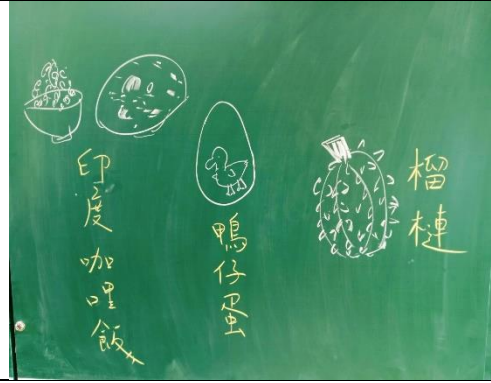 印度咖哩飯
鴨仔蛋
榴槤